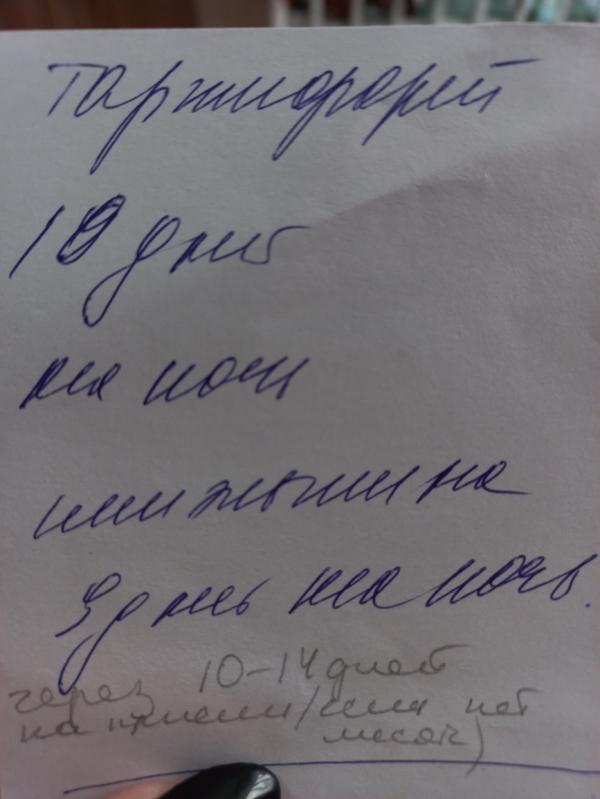 Таржифорт
10 дней
на ночь
или эльжина
9 дней на ночь.
через 10-14 дней
на прием (если нет
месяч)